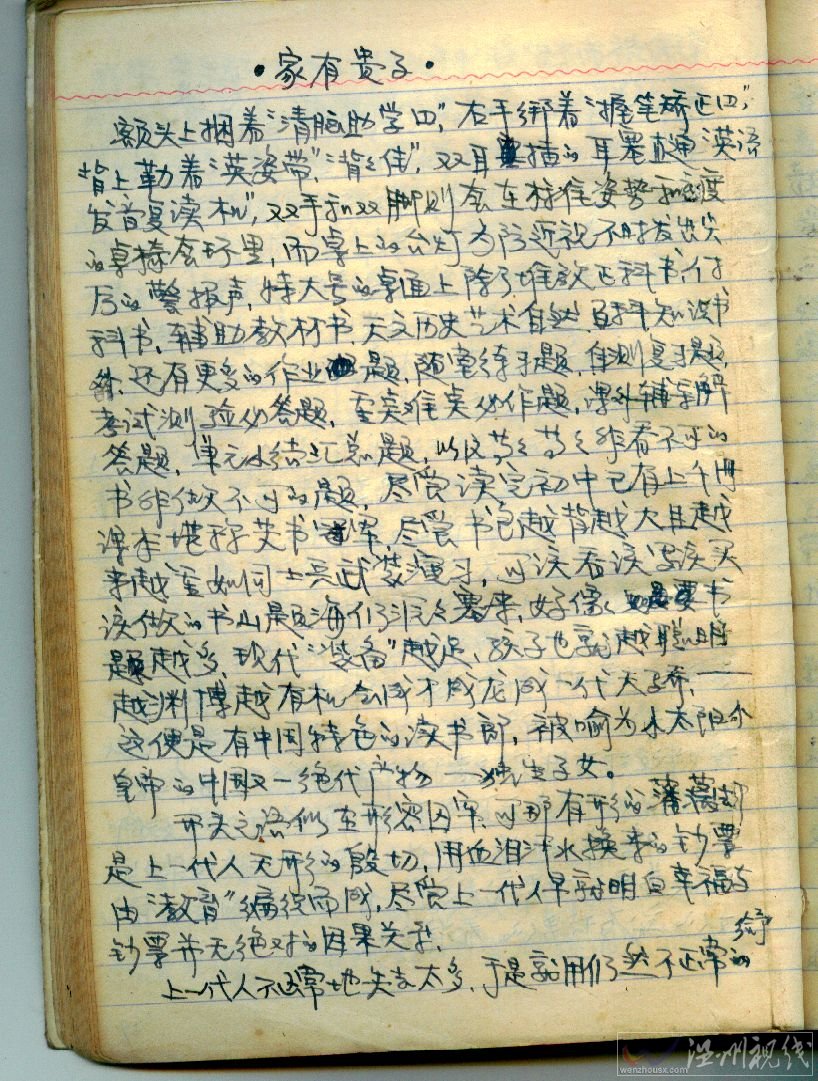 ·家有贵子·
额头上捆着“清脑助学口”，右手绑着“握笔矫正口”，
背上勒着“英姿带”“背背佳”，双耳插的耳塞直通“英语
发音复读机”，双手和双脚则套在标准姿势和宽度
的桌椅套环里，而桌上的台灯为防近视不时拨出尖
厉的警报声，特大号的桌面上除了堆放正科书付
科书，辅助教材书，天文历史艺术自然百科知识书
外，还有更多的作业题，随堂练习题，自测复习题，
考试测验必答题，重点难点必作题，课外辅导解
答题，单元小结汇总题，以及等等等等非看不可的
书非做不可的题，尽管读完初中已有上千册
课本堪称艺书，尽管书包越背越大且越
来越重如同士兵武装演习，可该看该写该买
该做的书山题海仍滚滚袭来，好像要书
题越多，现代“装备”越足，孩子也就越聪明
越渊博越有机会成才成龙成一代天骄，——
这便是有中国特色的读书郎，被喻为小太阳小
皇帝的中国又一绝代产物——独生子女。
开头之语似在形容囚牢，可那有形的藩篱却
是上一代人无形的殷切，用血泪汗水换来的钞票
由“教育”编织而成，尽管上一代人早就明白幸福与
钞票并无绝对的因果关系，
上一代人不正常地失去太多，于是就用仍然不正常的
给予
涅州视线
wenzhousx.com